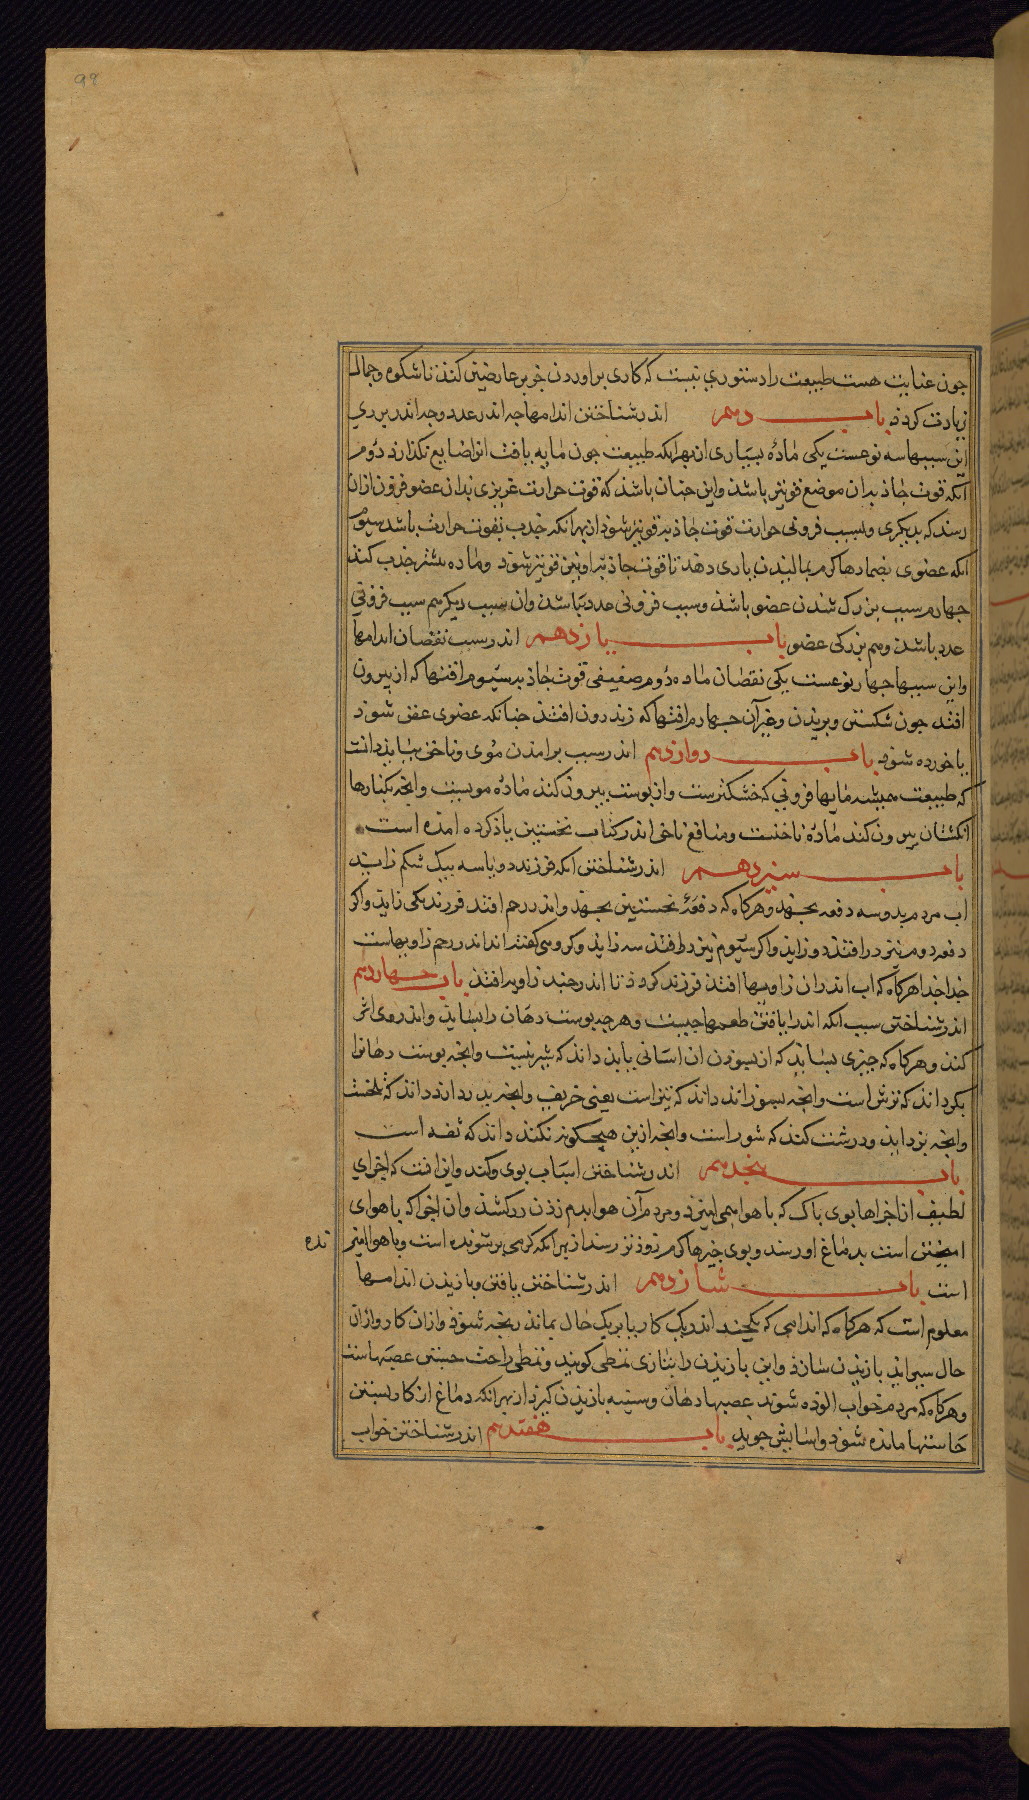 ٩٤
جون عنایت هست طبیعت را دستوری نیست که کاری براوردن خو برعارضیتن کند تا شکوه و جمال
زیادت کردد باب دهم اندر شناختن اندامها جه اندر عدد وجه اندر بزرکی
این سببها سه نوعست یکی مادۀ بسیاری ازبهرانکه طبیعت جون مایه یافت انرا ضایع نکذارد دوم
انکه قوت جاذبه ان موضع قویتر باشد واین جنان باشد که قوت حرارت غریزی بدان عضو فزون ازان
رسد که بدیکری وبسبب فزونی حرارت قوت جاذبه قویتر شود ازبهرانکه جذب بقوت حرارت باشد سیوم
انکه عضوی بضمادها کرم بمالیدن یاری دهند تا قوت جاذبه او بدین قویتر شود وماده بیشتر جذب کند
جهارم سبب بزرک شدن عضو باشد وسبب فزونی عدد نباشد وان سبب دیکر هم سبب فزونی
عدد باشد وهم بزرکی عضو باب یازدهم اندر سبب نقصان اندامها
واین سببها جهار نوعست یکی نقصان ماده دوم ضعیفی قوت جاذبه سیوم افتها که از بیرون
افتد جون شکستن وبریدن وغیرآن جهارم افتها که زندرون افتد جنانکه عضوی عفن شود
یا خورده شود باب دوازدهم اندر سبب برامدن موی وناخن بباید دانست
که طبیعت همیشه مایها فزونی که خشکترست وازپوست بیرون کند مادۀ مویست وانجه بکنارها
انکشتان بیرون کند مادۀ ناخنست ومنافع ناخن اندر کتاب نخستین یاد کرده امده است
باب سیزدهم اندر شناختن انکه فرزند دو یا سه بیک شکم زایند
اب مردم بدو سه دفعه بجهد وهرکاه که دفعۀ نخستین بجهد واندر رحم افتد فرزند یکی زاید واکر
دفعه دوم نیز درافتد دو زاید واکر سیوم نیز درافتد سه زاید وکروهی کفته اند اندر رحم زاویهاست
جدا جدا هرکاه که اب اندران زاویها افتد فرزند کردد تا اندر جند زاویه افتد باب جهاردهم
اندر شناختن سبب انکه اندر یافتن طعمها جیست وهرجه پوست دهان را بساید واندر وی اثر
کند وهرکاه که جیزی بساید که از بسودن ان اسانی یابد داند که شیرینست وانجه پوست دهانرا
بکرداند که ترش است وانجه بسوزاند داند که تیزاست یعنی حریف وانجه بدرداند داند که تلخست
وانجه بزداید ودرشت کند که شور است وانجه ازین هیچکونه نکند داند که تفه است
باب پنجدهم اندر شناختن اسباب بوی وکند وانرا فت که اجزای
لطیف از اجزاها بوی ناک که با هوا همی امیزد ومردم آن هوا بدم زدن درکشد وان اجزا که با هوای
امیختن است بدماغ اورسد وبوی جیزها کرم زودتر رسد ازبهرانکه کرمی برشونده است وبا هوا امیز نده
است باب شانزدهم اندر شناختن یافتن ویازیدن اندامها
معلوم است که هرکاه که اندامی که یکجند اندر یک کار یا بریک حال بماند رنجه شود وازان کار وازان
حال سیر اید یازیدن سازد واین یازیدن را بتازی تمطی کویند وتمطی راحت جستن عصبهاست
وهرکاه که مردم خواب الوده شوند عصبها دهان وسینه یازیدن کیرد ازبهرانکه دماغ ازکار بستن
حاستها مانده شود واسایش جوید باب هفتدهم اندر شناختن خواب